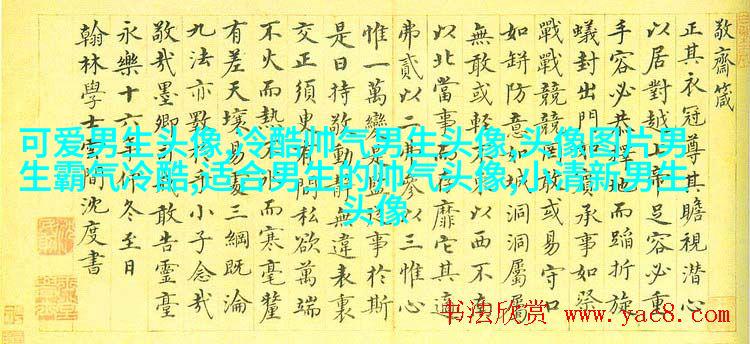 敬齋箴
正其衣冠尊其瞻視潛心
以居對越上帝足容必重
手容必恭擇地而蹈折旋
蟻封出門如賓承事如祭
戰戰兢兢罔敢或易守口
如缾防意如城洞洞屬屬
無敢或輕不東以西不南
以北當事而存靡它其適
弗貳以二弗參以三惟心
惟一萬變是監從事於斯
是曰持敬動靜無違表裏
交正須臾有間私欲萬端
不火而熱不冰而寒毫釐
有差天壤易處三綱既淪
九法亦斁於乎小子念哉
敬哉墨卿司戒敢告靈臺
永樂十六年仲冬至日
翰林學士雲間沈度書
可爱男生头像,冷酷帅气男生头像,头像图片男
生霸气冷酷,适合男生的帅气头像,小清新男生
头像
书法欣赏 www.yac8.com